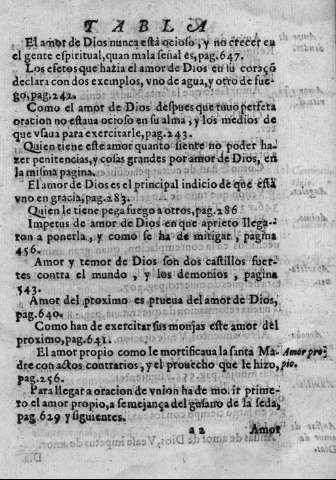 TABLA
El amor de Dios nunca està ocioso, y no crecer en
el gente espiritual, quan mala señal es, pag. 647.
Los efetos que hazia el amor de Dios en su coraçõ
declara con dos exemplos, vno de agua, y otro de fue-
go, pag. 242.
Como el amor de Dios despues que tuuo perfeta
oracion no estaua ocioso en su alma, y los medios de
que vsaua para exercitarle, pag. 243.
Quien tiene este amor quanto siente no poder ha-
zer penitencias, y cosas grandes por amor de Dios, en
la misma pagina.
El amor de Dios es el principal indicio de que està
vno en gracia, pag. 283.
Quien le tiene pega fuego a otros, pag. 286
Impetus de amor de Dios en que aprieto llega-
ron a ponerla, y como se ha de mitigar, pagina
456.
Amor y temor de Dios son dos castillos fuer-
tes contra el mundo, y los demonios, pagina
543.
Amor del proximo es prueua del amor de Dios,
pag. 640.
Como han de exercitar sus monjas este amor del
proximo, pag. 641.
El amor propio como le mortificaua la santa Ma- Amor pro
dre con actos contrarios, y el prouecho que le hizo, pio.
pag. 256.
Para llegar a oracion de vnion ha de mo. ir prime-
ro el amor propio, a semejança del gusano de la seda,
pag. 629 y siguientes.
a 2 Amor